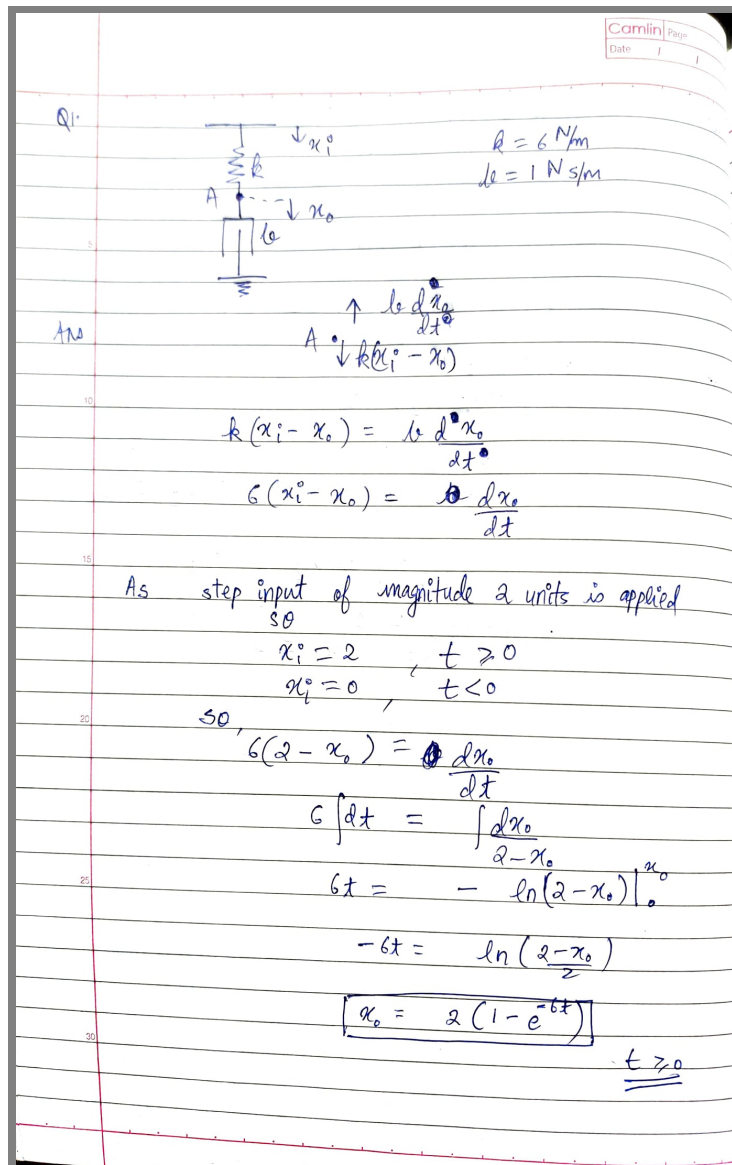 Camlin Page
Date / /
Q1.
↓ xi
k
A
↓ x₀
b
k = 6 N/m
b = 1 N s/m
5
Ans
↑ b dx₀/dt
A ↓ k(xi - x₀)
10
k(xi - x₀) = b dx₀/dt
6(xi - x₀) = dx₀/dt
15
As step input of magnitude 2 units is applied
so
xi = 2 , t ⩾ 0
xi = 0 , t < 0
20
so,
6(2 - x₀) = dx₀/dt
6 ∫dt = ∫ dx₀/2-x₀
25
6t = - ln(2-x₀)|₀^x₀
-6t = ln(2-x₀/2)
x₀ = 2(1 - e^-6t)
30
t ⩾ 0